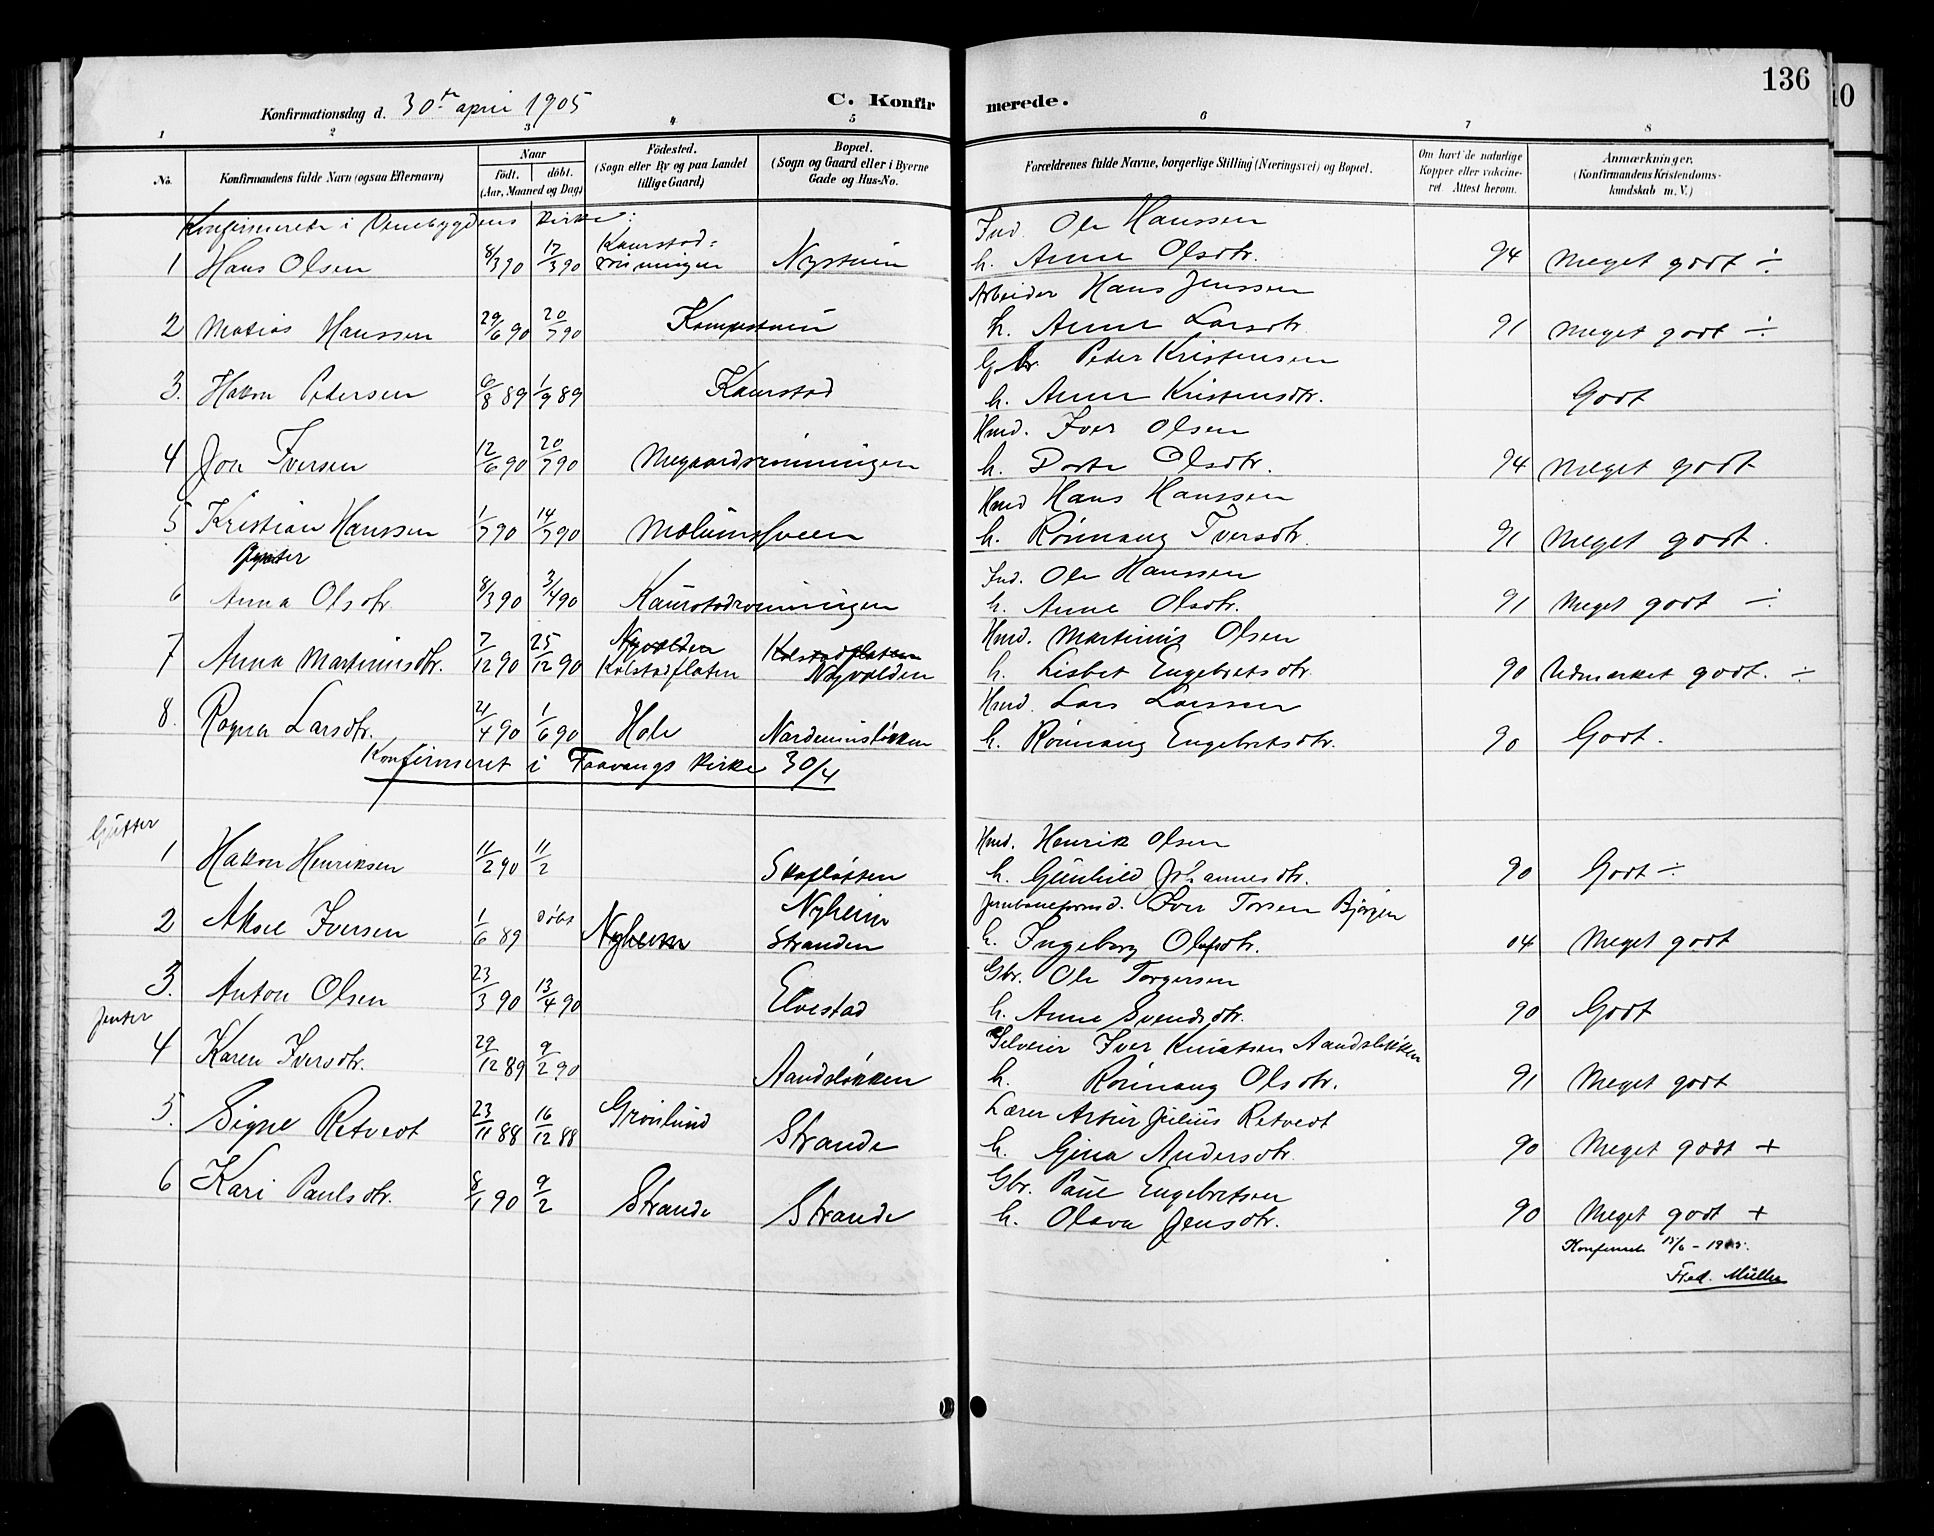 136
Konfirmationsdag d. 30te april 1905 C. Konfirmerede.
1 2 3 4 5 6 7 8
No. Konfirmandens fulde Navn (ogsaa Efternavn) Naar födt. döbt. (Aar, Maaned og Dag) Födested. (Sogn eller By og paa Landet tillige Gaard) Bopæl. (Sogn og Gaard eller i Byerne Gade og Hus-No. Forældrenes fulde Navne, borgerlige Stilling (Næringsvei) og Bopæl. Om havt de naturlige Kopper eller vakcineret. Attest herom. Anmærkninger, (Konfirmandens Kristendomskundskab m. V.)
Konfirmerede i Venebygdens Kirke:
1 Hans Olsen 8/3 90 17/3 90 Kaurstadrönningen Nystuen Ind. Ole Hanssen h. Anne Olsdtr. 94 Meget godt ÷
2 Matias Hanssen 29/6 90 20/7 90 Kampestuen Arbeider Hans Jenssen h. Anne Larsdtr. 91 Meget godt ÷
3. Hakon Pedersen 6/8 89 1/9 89 Kaurstad Gbr. Peder Kristensen h. Anne Kristensdtr. Godt
4 Jon Iversen 12/6 90 20/7 90 Megaardsrönningen Hmd. Iver Olsen h. Dorte Olsdtr. 94 Meget godt
5 Kristian Hanssen 1/7 90 14/7 90 Molumssveen Hmd Hans Hanssen h. Rönnaug Iversdtr. 91 Meget godt.
Jenter
6 Anna Olsdtr. 8/3 90 3/4 90 Kaurstadrönningen Ind. Ole Hanssen h. Anne Olsdtr. 91 Meget godt ÷
7 Anna Martinusdtr. 7/12 90 25/12 90 Nyvolden Kolstadflaten Kolstadflaten Nyvolden Hmd. Martinus Olsen h. Lisbet Engebretsdtr. 90 Udmerket godt. ÷
8. Ragna Larsdtr. 21/4 90 1/6 90 Hole Nordrumsløkken Hmd. Lars Larssen h. Rönnaug Engebretsdtr. 90 Godt.
Konfirmeret i Faavangs Kirke 30/4
Gutter
1 Hakon Henriksen 11/2 90 11/2 Skofløtten Hmd. Henrik Olsen h. Gunhild Johannesdtr. 90 Godt ÷
2 Aksel Iversen 1/6 89 döbt Nyheim Nyheim Stranden Jernbaneformd. Iver Torsen Bjørgen h. Ingeborg Olafsdtr. 04 Meget godt
3. Anton Olsen 23/3 90 13/4 90 Elvestad Gbr. Ole Torgersen h. Anne Svendsdtr. 90 Godt
Jenter
4 Karen Iversdtr. 29/12 89 9/2 90 Aandsløkken Selveier Iver Knutsen Aandsløkken h. Rönnaug Olsdtr. 91 Meget godt
5. Signe Retvedt 23/11 88 16/12 88 Grønlund Strande Lærer Artur Julius Retvedt h. Gina Andersdtr. 90 Meget godt +
6 Kari Paulsdtr. 8/1 90 9/2 Strande Strande Gbr. Paul Engebretsen h. Olava Jensdtr. 90 Meget godt +
Konferert 15/6 - 1905.
Fred. Müller